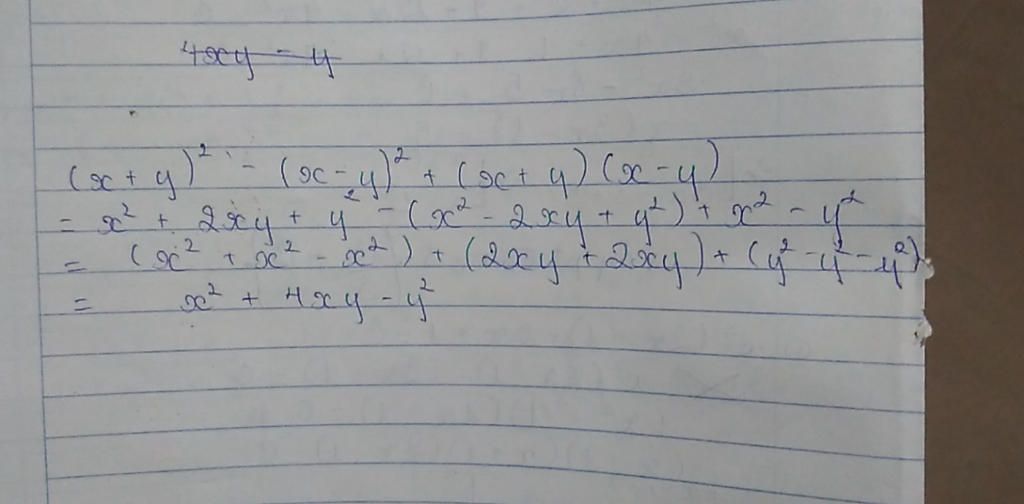 4xy - y
(x + y)² - (x - y)² + (x + y) (x - y)
= x² + 2xy + y² - (x² - 2xy + y²) + x² - y²
= (x² + x² - x²) + (2xy + 2xy) + (y² - y² - y²)
= x² + 4xy - y²